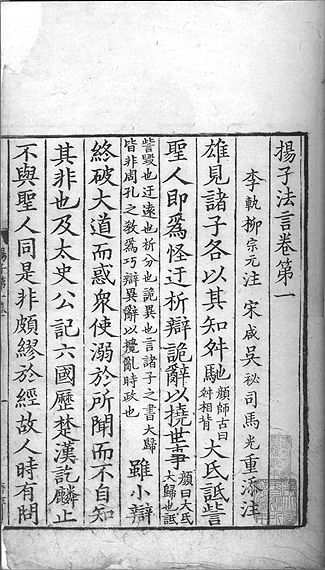 揚子法言卷第一
李軌柳宗元注 宋咸吳祕司馬光重添注
雄見諸子各以其知舛馳顏師古曰舛相背大氐詆訾
聖人即爲怪迂析辯詭辭以撓世事顏曰大氐大歸也詆
訾毀也迂遠也析分也詭異也言諸子之書大歸
皆非周孔之教爲巧辯異辭以攪亂時政也
雖小辯
終破大道而惑衆使溺於所聞而不自知
其非也及太史公記六國歷楚漢訖麟止
不與聖人同是非頗繆於經故人時有問